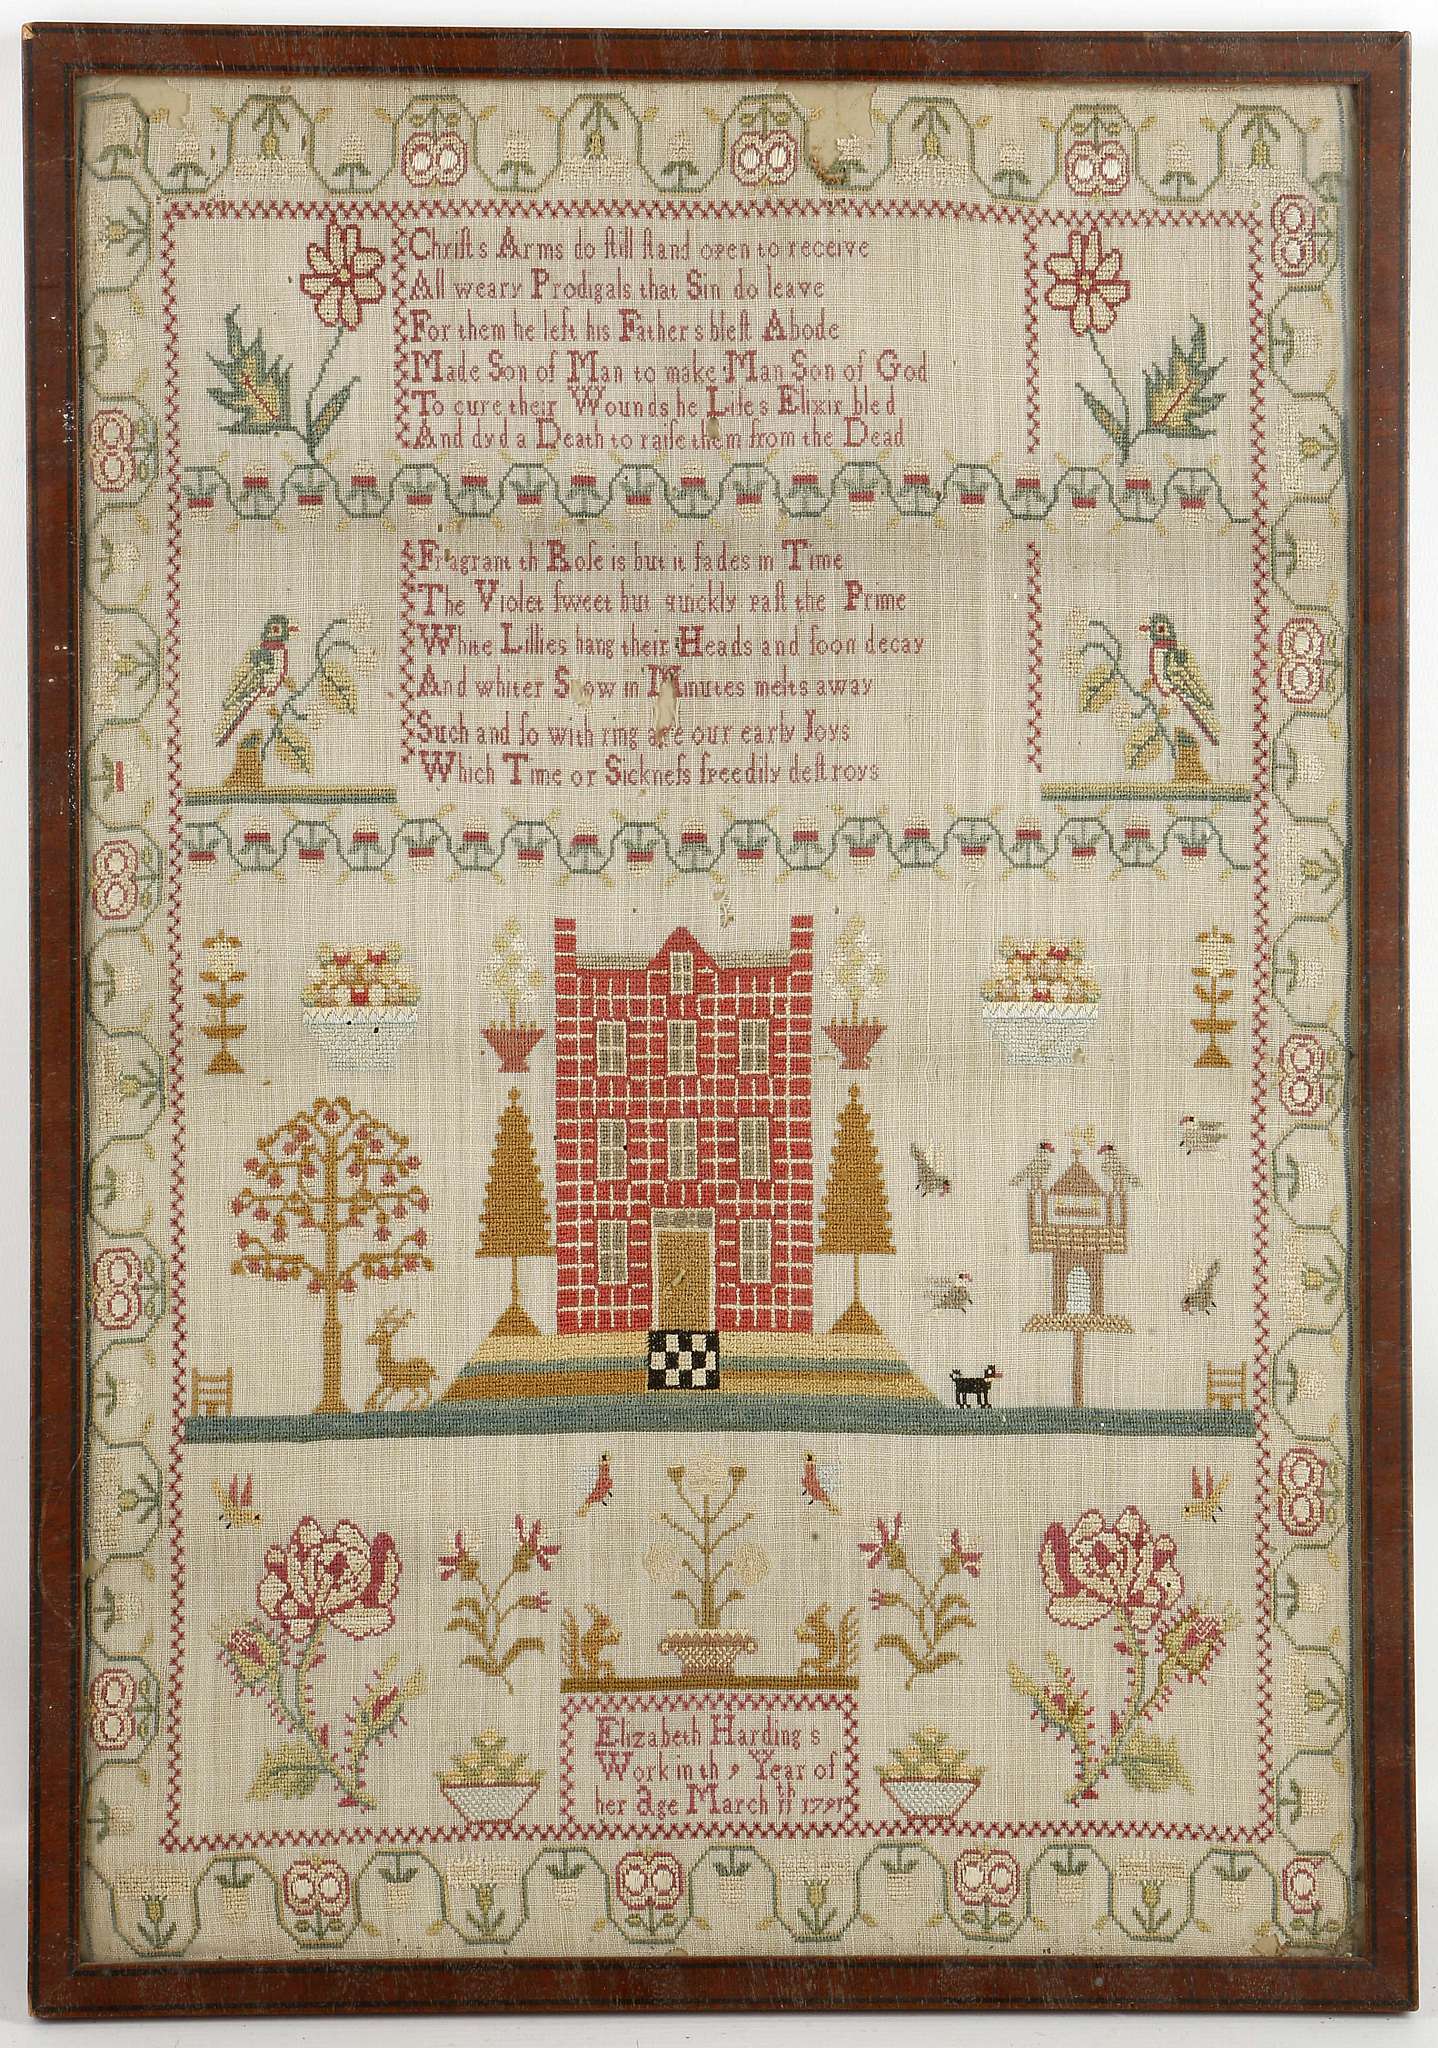 Chriſt s Arms do ſtill ſtand open to receive
All weary Prodigals that Sin do leave
For them he left his Father s bleſt Abode
Made Son of Man to make Man Son of God
To cure their Wounds he Life s Elixir bled
And dyd a Death to raiſe them from the Dead
Fragrant th Roſe is but it fades in Time
The Violet ſweet but quickly paſt the Prime
White Lillies hang their Heads and ſoon decay
And whiter Snow in Minutes melts away
Such and ſo with ring are our early Joys
Which Time or Sickneſs ſpeedily deſtroys
Elizabeth Harding s
Work in th 9 Year of
her age March 11th 1791